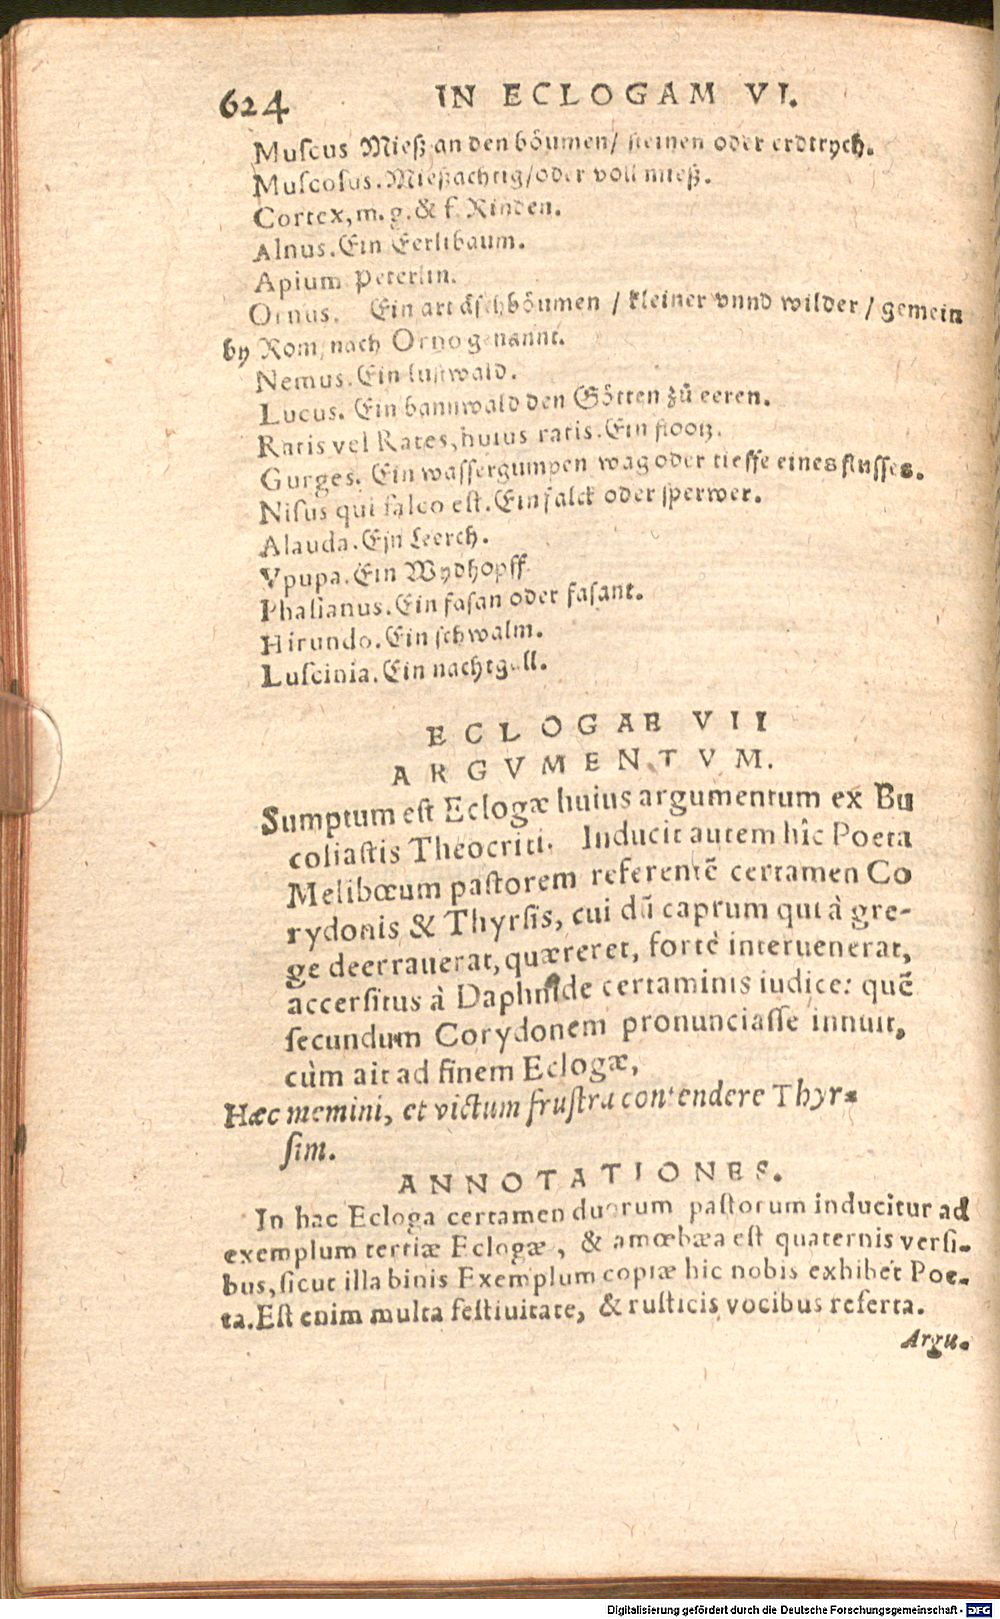 624 IN ECLOGAM VI.
Muſcus Mieß an den böumen/ ſteinen oder erdtrych.
Muſcoſus. Mießachtig/oder voll mieß.
Cortex, m. g. & f. Rinden.
Alnus. Ein Eerlibaum.
Apium Peterlin.
Ornus. Ein art äſchböumen / kleiner vnnd wilder / gemein
by Rom/ nach Orno genannt.
Nemus. Ein luſtwald.
Lucus. Ein bannwald den Götten zů eeren.
Ratis vel Rates, huius ratis. Ein flootz.
Gurges. Ein waſſergumpen wag oder tieffe eines fluſſes.
Niſus qui falco eſt. Ein falck oder ſperwer.
Alauda. Ein Leerch.
Vpupa. Ein Wydhopff
Phaſianus. Ein faſan oder faſant.
Hirundo. Ein ſchwalm.
Luſcinia. Ein nachtgall.
ECLOGAE VII
ARGVMENTVM.
Sumptum eſt Eclogæ huius argumentum ex Bu
coliaſtis Theocriti. Inducit autem hîc Poeta
Melibœum paſtorem referentẽ certamen Co
rydonis & Thyrſis, cui dũ caprum qui à gre-
ge deerrauerat, quæreret, fortè interuenerat,
accerſitus à Daphnide certaminis iudice: quẽ
ſecundum Corydonem pronunciaſſe innuit,
cùm ait ad finem Eclogæ,
Hæc memini, et victum fruſtra contendere Thyr-
ſim.
ANNOTATIONES.
In hac Ecloga certamen duorum paſtorum inducitur ad
exemplum tertiæ Eclogæ, & amœbæa eſt quaternis verſi-
bus, ſicut illa binis Exemplum copiæ hic nobis exhibet Poe-
ta. Eſt enim multa feſtiuitate, & ruſticis vocibus referta.
Argu-
Digitalisierung gefördert durch die Deutsche Forschungsgemeinschaft - DFG